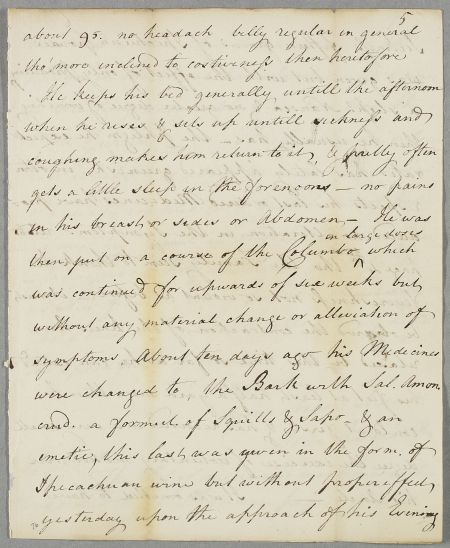 5
about 95. no headach belly regular in general
tho' more inclined to costiveness then heretofore
He keeps his bed generally untill the afternoon
when he rises & sets up untill sickness and
coughing makes him return to it, & pretty often
gets a little sleep in the forenoons — no pains
in his breast or sides or Abdomen — He was
in Large doses
then put on a course of the Columbo ^ which
was continued for upwards of six weeks but
without any material change or alleviation of
symptoms About ten days ago his Medicines
were changed to the Bark with Sal. Amon.
crud. a formul. of Squills & Sapo — & an
emetic, this last was given in the form of
Ipecachuan wine but without proper effect,
yesterday upon the approach of his Evening